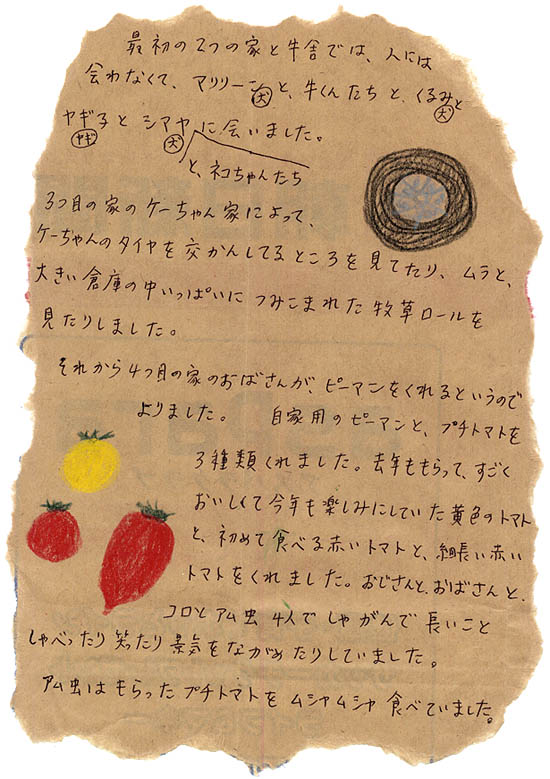 最初の2つの家と牛舎では、人には
会わなくて、マリリーンと、牛くんたちと、くるみと
犬
犬
ヤギ子とシマヤに会いました。
ヤギ
犬
と、ネコちゃんたち
3つ目の家のケーちゃん家によって、
ケーちゃんのタイヤを交かんしてるところを見てたり、ムラと、
大きい倉庫の中いっぱいにつみこまれた牧草ロールを
見たりしました。
それから4つ目の家のおばさんが、ピーマンをくれるというので
よりました。 自家用のピーマンと、プチトマトを
3種類くれました。去年ももらって、すごく
おいしくて今年も楽しみにしていた黄色のトマト
と、初めて食べる赤いトマトと、細長い赤い
トマトをくれました。おじさんと、おばさんと、
コロとアム虫4人でしゃがんで長いこと
しゃべったり笑ったり景気をながめたりしていました。
アム虫はもらったプチトマトをムシャムシャ食べていました。